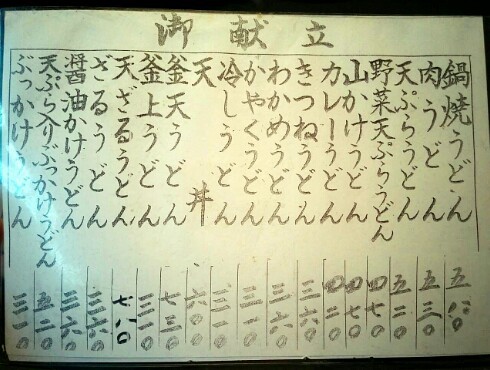 御献立
鍋焼うどん 五八〇
肉うどん 五三〇
天ぷらうどん 五二〇
野菜天ぷらうどん 四七〇
山かけうどん 四七〇
カレーうどん 四二〇
きつねうどん 三六〇
わかめうどん 三六〇
かやくうどん 三一〇
冷しうどん 三一〇
天丼 六〇〇
釜天うどん 七三〇
釜上うどん 三一〇
天ざるうどん 七八〇
ざるうどん 三六〇
醤油かけうどん 三六〇
天ぷら入りぶっかけうどん 五二〇
ぶっかけうどん 三一〇